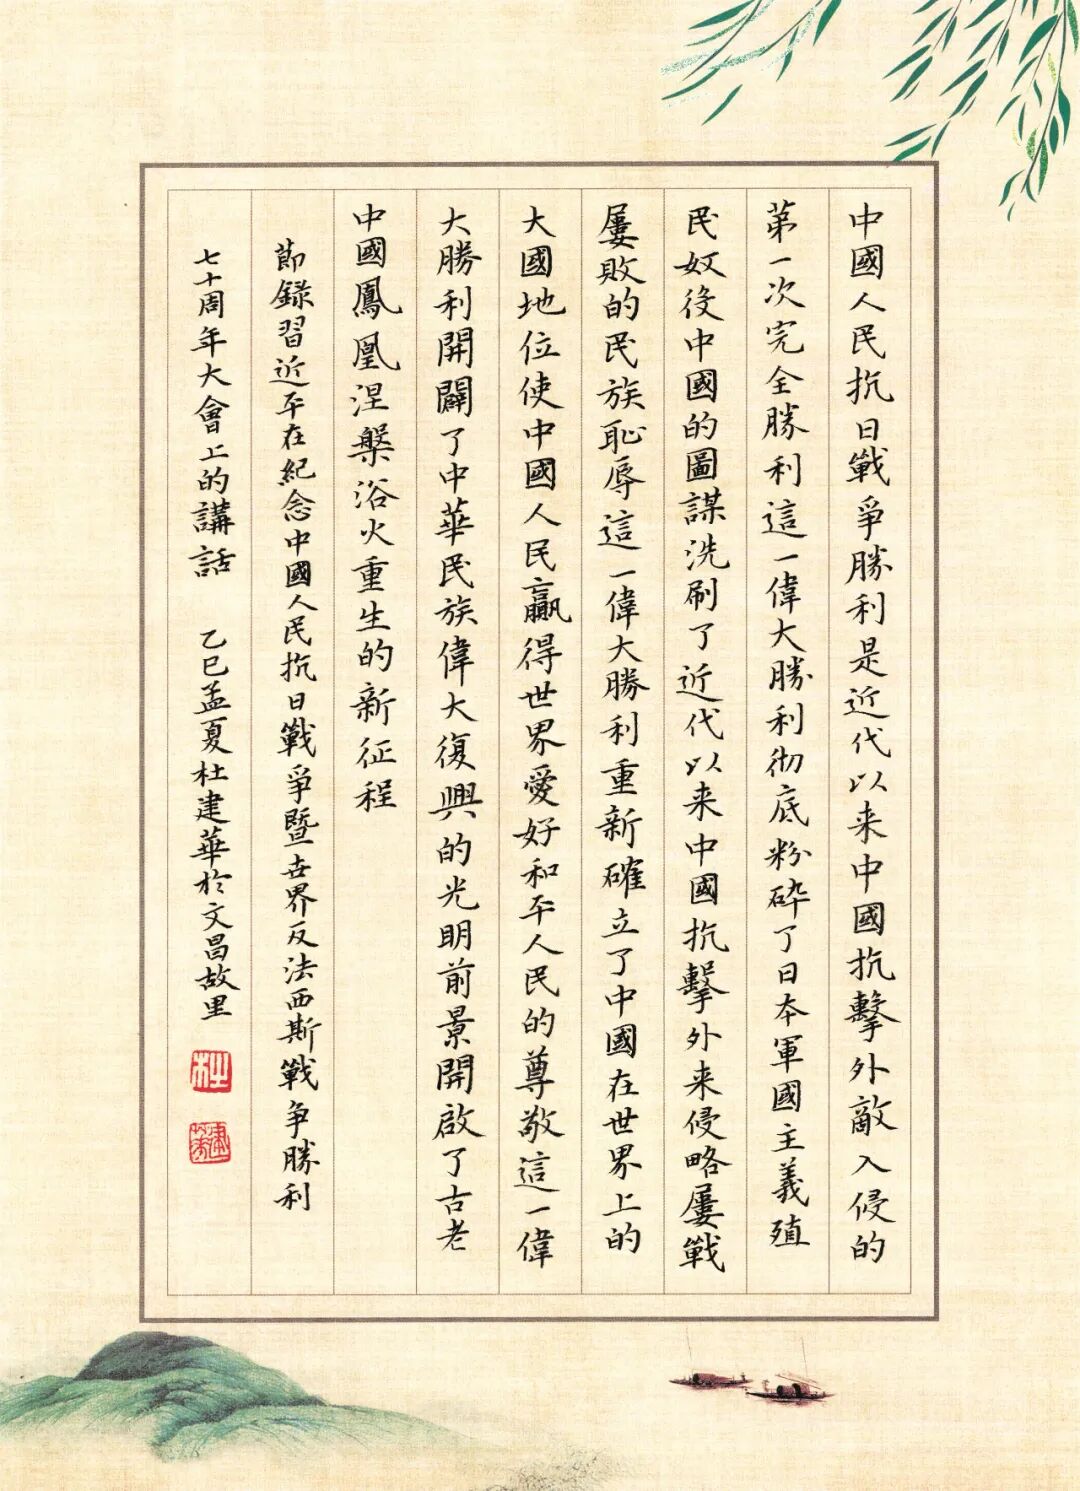 中國人民抗日戰爭勝利是近代以来中國抗擊外敵入侵的
第一次完全勝利這一偉大勝利彻底粉碎了日本軍國主義殖
民奴役中國的圖謀洗刷了近代以来中國抗擊外来侵略屢戰
屢敗的民族恥辱這一偉大勝利重新確立了中國在世界上的
大國地位使中國人民贏得世界愛好和平人民的尊敬這一偉
大勝利開闢了中華民族偉大復興的光明前景開啟了古老
中國鳳凰涅槃浴火重生的新征程
節録習近平在紀念中國人民抗日戰爭暨世界反法西斯戰争勝利
七十周年大會上的講話 乙巳孟夏杜建華於文昌故里
杜
建華